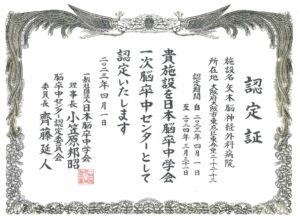 認定証
施設名 矢木脳神経外科病院
所在地 大阪府大阪市東成区東今里二-十二-十三
認定期間 自 二〇二三年 四月 一日
至 二〇二四年 三月三十一日
貴施設を日本脳卒中学会
一次脳卒中センターとして
認定いたします
二〇二三年 四月 一日
一般社団法人日本脳卒中学会
理事長 小笠原邦昭
脳卒中センター認定委員会
委員長 齊藤延人